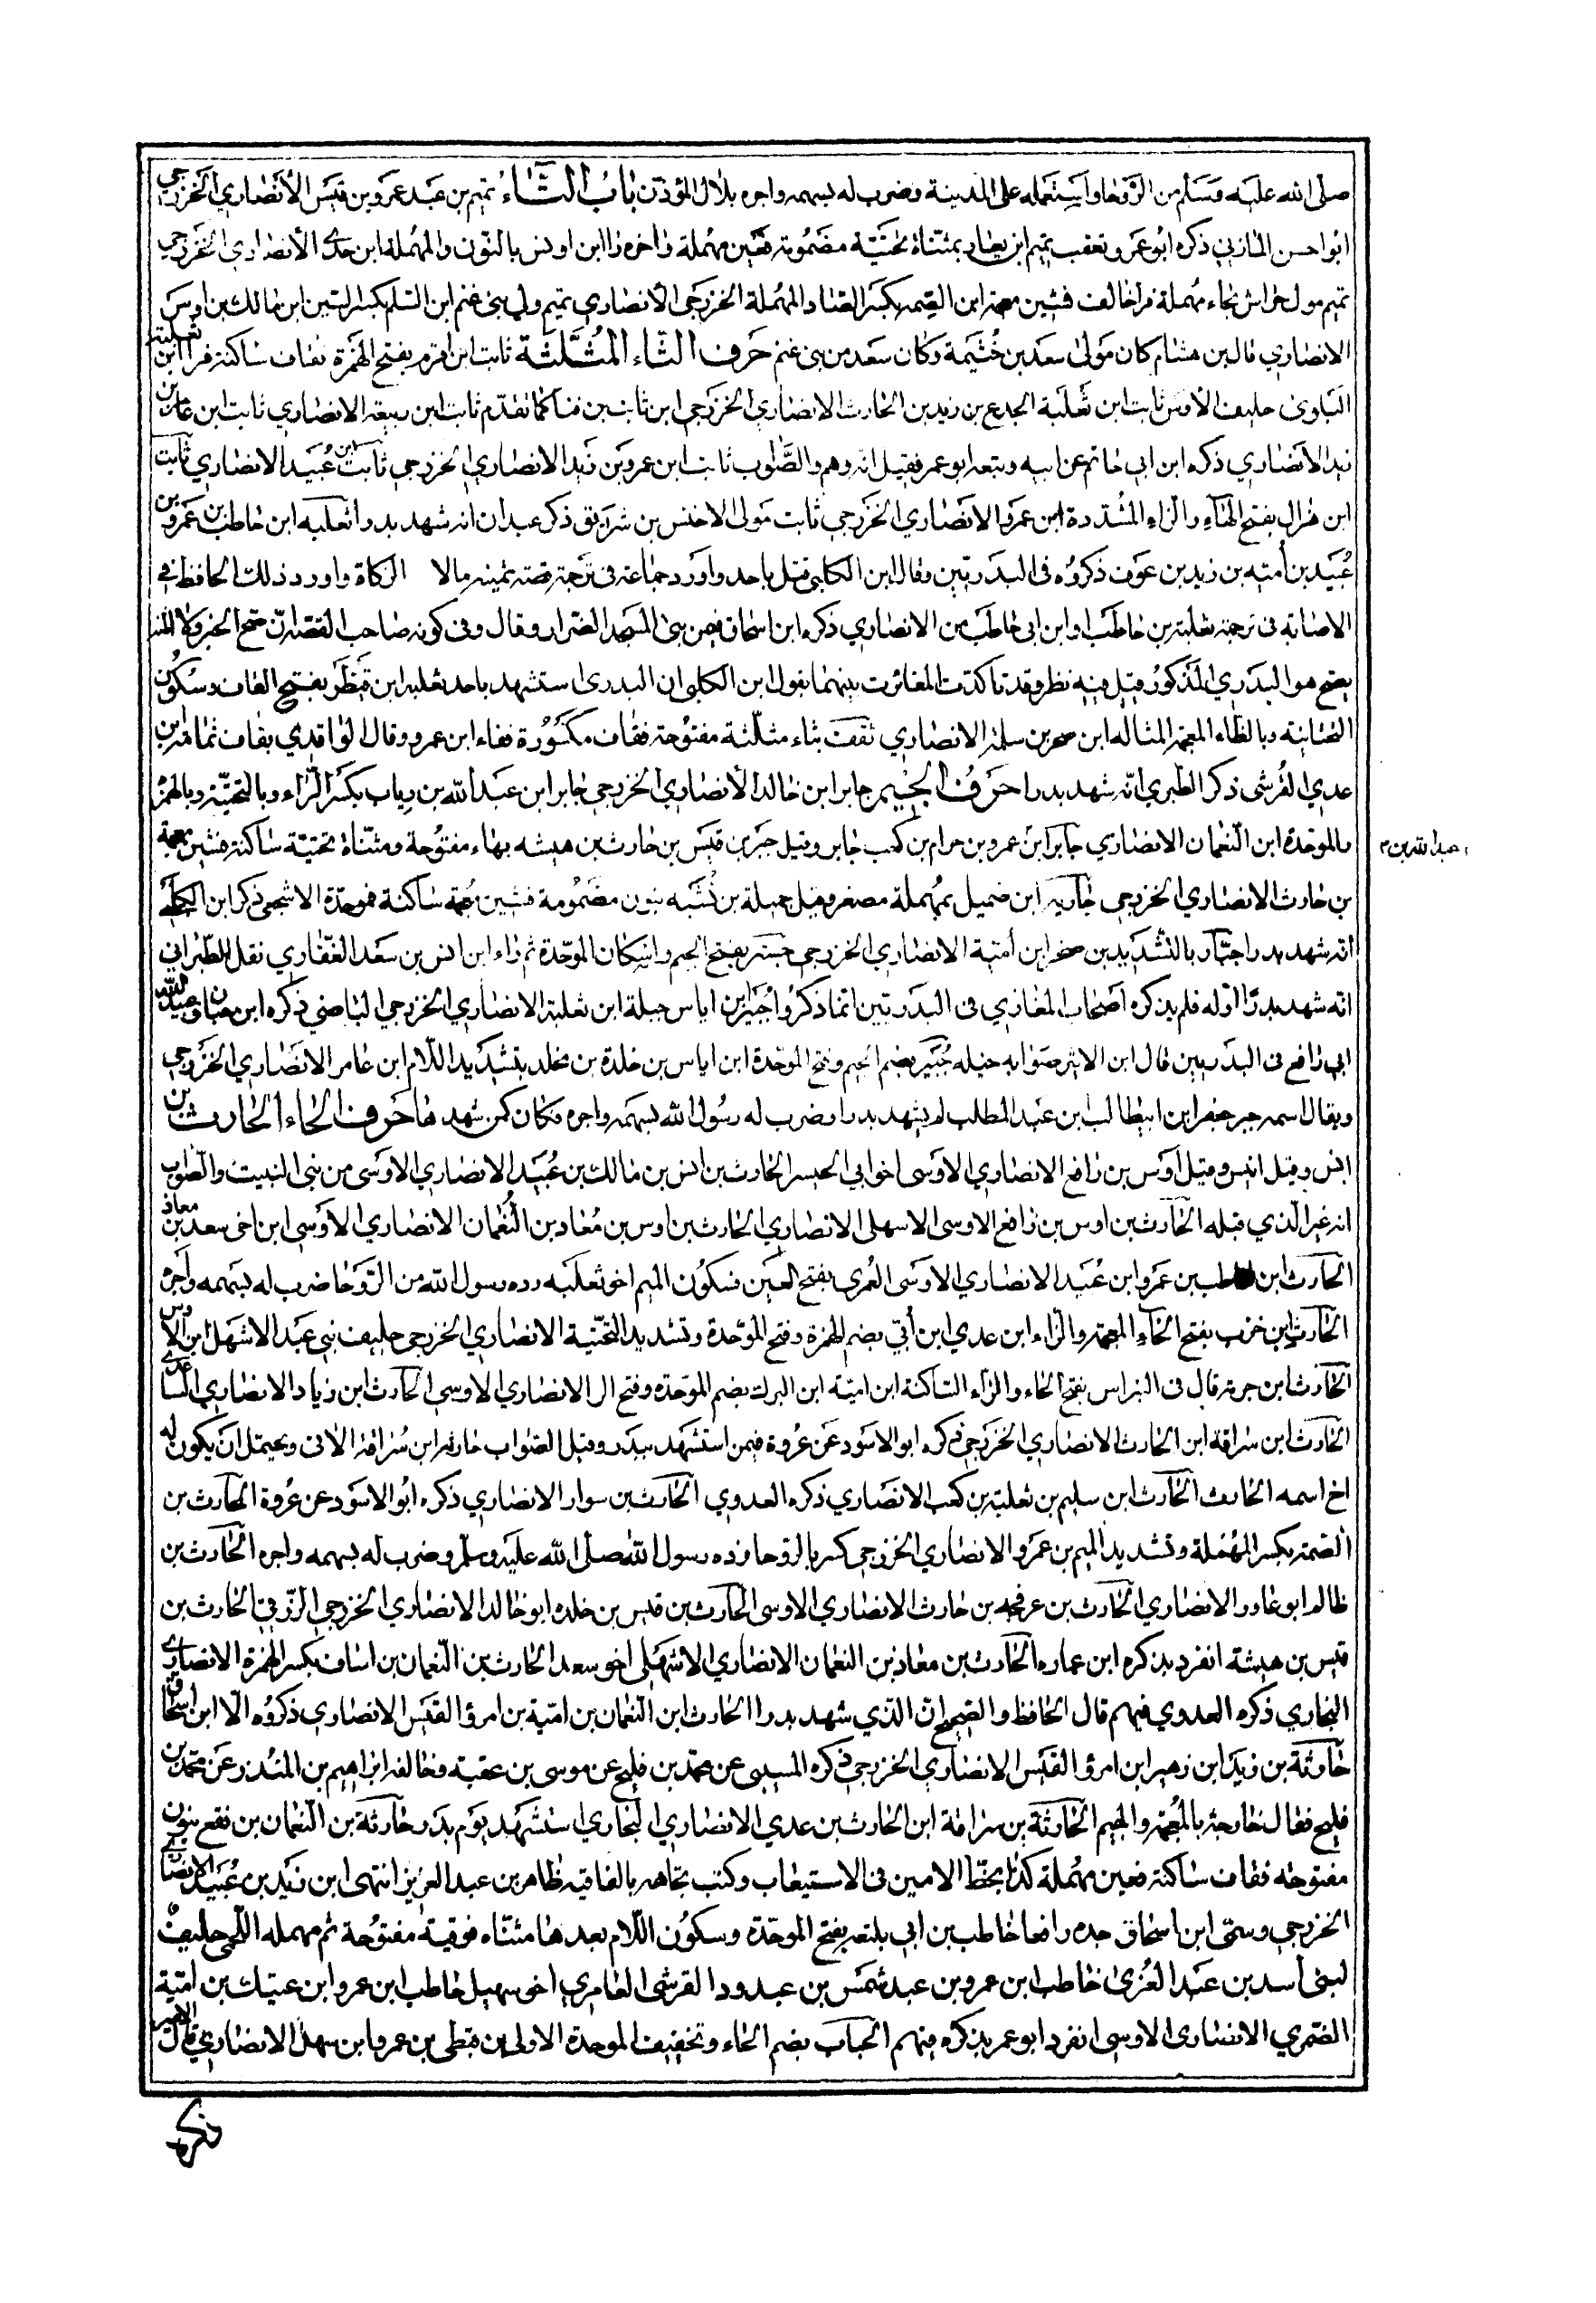 صلى الله عليه وسلم من الروحا واستعمله على المدينة وضرب له بسهمه واجره بلال المؤذن باب التاء تميم بن عبد عمرو بن قيس الأنصاري الخزرجي
ابو احسن المازني ذكره ابو عمر وتعقب تميم ابن يعار بمثناة تحتية مضمومة فعين مهملة واخره را ابن اوس بالنون والمهملة ابن عدي الأنصاري الخزرجي
تميم مولى خراش بخاء مهملة فرا فالف فشين معجمة ابن الصمة بكسر الصاد المهملة الخزرجي الأنصاري تميم ولي بني غنم ابن السلم بكسر السين ابن مالك بن اوس
الانصاري قال بن هشام كان مولى سعد بن خثيمة وكان سعد من بني غنم حرف الثاء المثلثة ثابت ابن اقرم بفتح الهمزة بقاف ساكنة فرا ابن ثعلبة
البلوى حليف الأوس ثابت ابن ثعلبة الجدع بن زيد بن الحارث الانصاري الخزرجي ابن ثابت بن كما تقدم ثابت ابن ربيعة الانصاري ثابت ابن عامر بن
زيد الأنصاري ذكره ابن ابي حاتم عن ابيه وتبعه ابو عمر فقيل انه وهم والصواب ثابت ابن عمرو بن زيد الانصاري الخزرجي ثابت ابن عبيد الانصاري ثابت
ابن هزال بفتح الهاء والزاء المشددة ابن عمرو الانصاري الخزرجي ثابت مولى الاخنس بن شريق ذكر عبدان انه شهد بدرا ثعلبه ابن حاطب بن عمرو بن
عبيد بن أميه بن زيد بن عوف ذكروه فى البدريين وقال ابن الكلبي قتل باحد واورد جماعة فى ترجمة قصة مالا الزكاة واورد ذلك الحافظ في
الاصابة فى ترجمة ثعلبة بن حاطب او ابن ابي حاطب من الانصاري ذكره ابن اسحاق فيمن بنى المسجد الضرار وقال وفى كونه صاحب القصة ان صح الخبر ولا
يصح هو البدري المذكور قبله فيه نظر وقد تاكدت المغائرت بينهما بقول ابن الكلبي ان البدرى استشهد باحد ثعلبه ابن قيظر بفتح القاف وسكون
التحتانية وبالظاء المعجمة المثاله ابن صخر بن سلمة الانصاري ثقف بثاء مثلثة مفتوحة فقاف مكسورة ففاء ابن عمرو وقال الواقدي بقاف ثمامة بن
عدي القرشى ذكر الطبري انه شهد بدرا حرف الجيم جابر ابن خالد الأنصاري الخزرجي جابر ابن عبد الله بن رياب بكسر الراء وبالتحتية وبالهمز
بالموحدة ابن النعمان الانصاري جابر ابن عمرو بن حرام بن كعب جابر وقيل جبر بن قيس بن حارث بن هيشه بهاء مفتوحة ومثناة تحتية ساكنة فشين معجمة
عبد الله بن
بن حارث الانصاري الخزرجي جاريه ابن حميل بمهملة مصغر وقيل جميلة بن نشبه بنون مضمومة فشين معجمة ساكنة فموحدة الاشجعي ذكر ابن الكلبي
انه شهد بدرا جبار بالتشديد بن صخر ابن أمية الانصاري الخزرجي جبر بفتح الجيم واسكان الموحدة ثم راء ابن انس بن سعد الغفاري نقل الطبراني
انه شهد بدرا اوله فلم يذكره اصحاب المغازي فى البدريين انما ذكروا جبر بن اياس جبلة ابن ثعلبة الانصاري الخزرجي البياضي ذكره ابن حبان وعبيد الله بن
ابي رافع فى البدريين قال ابن الاثير صوابه حيله جبير بضم الجيم وفتح الموحدة ابن اياس بن خلدة بن مخلد بتشديد اللام ابن عامر الانصاري الخزرجي
ويقال اسمه جبر جعفر ابن ابيطالب ابن عبد المطلب لم يشهد بدرا وضرب له رسول الله بسهمه واجره وكان كمن شهدها حرف الحاء الحارث بن
انس وقيل انيس وقيل أوس بن رافع الانصاري الاوسى اخو ابي الحيسر الحارث بن انس بن مالك بن عبيد الانصاري الاوسى من بني النبيت والصواب
انه غير الذي قبله الحارث بن اوس بن رافع الاوسى الاسهلى الانصاري الحارث بن اوس بن معاذ بن النعمان الانصاري الأوسي ابن اخى سعد بن معاذ
الحارث ابن حاطب بن عمرو ابن عبيد الانصاري الاوسى العمري بفتح العين فسكون الميم اخو ثعلبه رده رسول الله من الروحا ضرب له بسهمه واجره
الحارث ابن خزب بفتح الخاء المعجمة والزاء ابن عدي ابن أبي بضم الهمزة وفتح الموحدة وتشديد التحتية الانصاري الخزرجي حليف بني عبد الاشهل ابن الاوس
الحارث ابن جرمة قال فى النبراس بفتح الخاء والزاء الساكنة ابن امية ابن البرك بضم الموحدة وفتح الر الانصاري الاوسي الحارث ابن زياد الانصاري الساعدي
الحارث ابن سراقة ابن الحارث الانصاري الخزرجي ذكره ابو الاسود عن عروة فيمن استشهد ببدر وقيل الصواب حارثه ابن سراقة الاتى ويحتمل ان يكون له
اخ اسمه الحارث الحارث ابن سليم بن ثعلبة بن كعب الانصاري ذكره العدوي الحارث بن سوار الانصاري ذكره ابو الاسود عن عروة الحارث بن
الصمة بكسر المهملة وتشديد الميم بن عمرو الانصاري الخزرجي كسر بالروحا فرده رسول الله صلى الله عليه وسلم وضرب له بسهمه واجره الحارث بن
ظالم ابو غاور الانصاري الحارث بن عرفجه بن حارث الانصاري الاوسى الحارث بن قيس بن خلده ابو خالد الانصاري الخزرجي الزرقي الحارث بن
قيس بن هيشة انفرد بذكره ابن عماره الحارث بن معاذ بن النعمان الانصاري الاشهلي اخو سعد الحارث بن النعمان بن اساف بكسر الهمزة الانصاري
البخاري ذكره العدوي فيهم قال الحافظ والصحيح ان الذي شهد بدرا الحارث ابن النعمان بن امية بن امرؤ القيس الانصاري ذكروه الا ابن اسحاق
حارثة بن زيد ابن زهير ابن امرؤ القيس الانصاري الخزرجي ذكره المسيبى عن محمد بن فليح عن موسى بن عقبة وخالفه ابراهيم بن المنذر عن محمد بن
فليح فقال خارجة بالمعجمة والجيم الحارثة بن سراقة ابن الحارث بن عدي الانصاري البخاري استشهد يوم بدر حارثة بن النعمان بن نقع بنون
مفتوحة فقاف ساكنة فعين مهملة كذا بخط الامين فى الاستيعاب وكتب تجاهه بالفاقيه ظاهر بن عبد العزيز انتهى ابن زيد بن عبيد الانصاري
الخزرجي وسمى ابن اسحاق جده رافعا حاطب بن ابي بلتعه بفتح الموحدة وسكون اللام بعدها مثناه فوقية مفتوحة ثم مهمله اللخمي حليف
لبنى أسد بن عبد العزى حاطب ابن عمرو بن عبد شمس بن عبدود القرشى العامري اخو سهيل حاطب ابن عمرو ابن عتيك بن امية
الضمري الانصارى الاوسى انفرد ابو عمر بذكره فيهم الحباب بضم الحاء وتخفيف الموحدة الاولى بن قبطى بن عمرو ابن سهل الانصاري قال الامير
ذكره